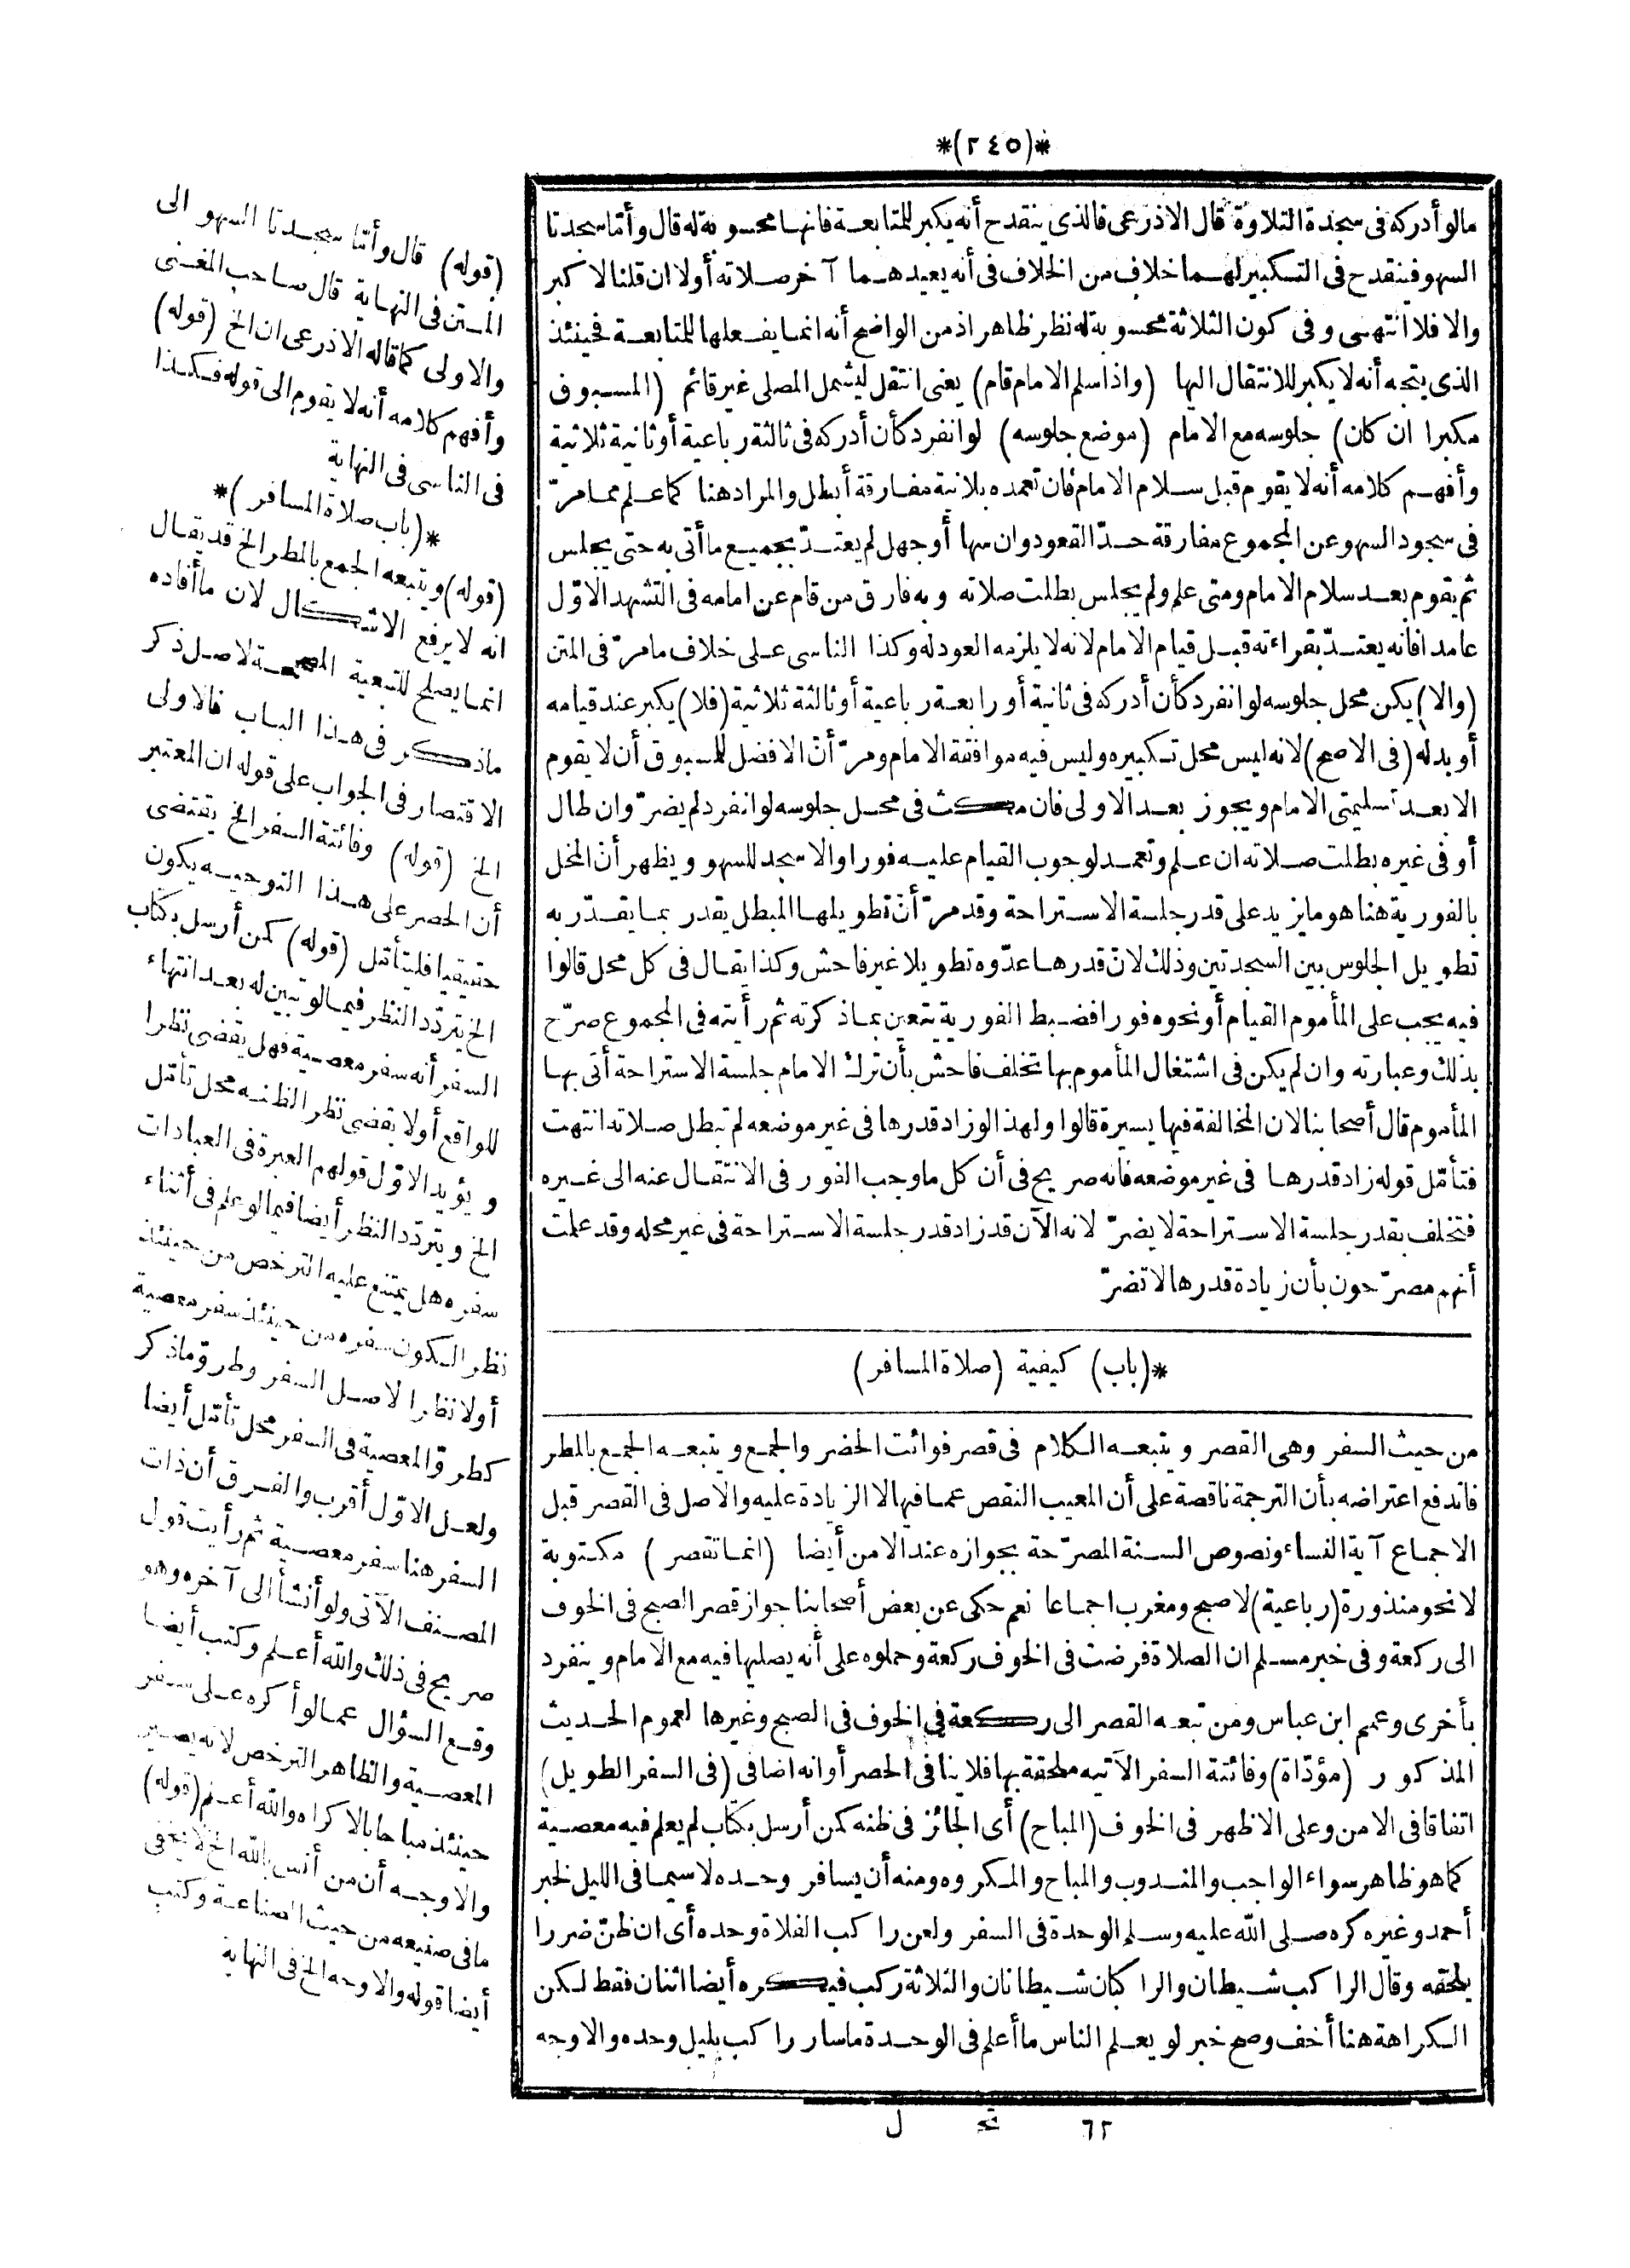 *(٢٤٥)*
مالو أدركه فى سجدة التلاوة قال الاذرعى فالذى ينقدح أنه يكبر للمتابعة فانها محسوبة له قال وأما سجدتا
السهو فينقدح فى التكبير لهما خلاف من الخلاف فى أنه يعيدهما آخر صلاته أولا ان قلنا لا كبر
والا فلا انتهى وفى كون الثلاثة محسوبة له نظر ظاهر اذ من الواضح أنه انما يفعلها للمتابعة فحينئذ
الذى يتجه أنه لا يكبر للانتقال اليها (واذا سلم الامام قام) يعنى انتقل ليشمل المصلى غير قائم (المسبوق
مكبرا ان كان) جلوسه مع الامام (موضع جلوسه) لو انفرد كأن أدركه فى ثالثة رباعية أو ثانية ثلاثية
وأفهم كلامه أنه لا يقوم قبل سلام الامام فان تعمده بلانية مفارقة أبطل والمراد هنا كما علم مما مرّ
فى سجود السهو عن المجموع مفارقة حدّ القعود وان سها أو جهل لم يعتدّ بجميع ما أتى به حتى يجلس
ثم يقوم بعد سلام الامام ومتى علم ولم يجلس بطلت صلاته وبه فارق من قام عن امامه فى التشهد الاوّل
عامدا فانه يعتدّ بقراءته قبل قيام الامام لانه لا يلزمه العود له وكذا الناسى على خلاف ما مرّ فى المتن
(والا) يكن محل جلوسه لو انفرد كأن أدركه فى ثانية أو رابعة رباعية أو ثالثة ثلاثية (فلا) يكبر عند قيامه
أو بدله (فى الاصح) لانه ليس محل تكبيره وليس فيه موافقة الامام ومرّ أنّ الافضل للمسبوق أن لا يقوم
الا بعد تسليمتى الامام ويجوز بعد الاولى فان مكث فى محل جلوسه لو انفرد لم يضرّ وان طال
أو فى غيره بطلت صلاته ان علم وتعمد لوجوب القيام عليه فورا والا سجد للسهو ويظهر أنّ المخل
بالفورية هنا هو ما يزيد على قدر جلسة الاستراحة وقد مرّ أنّ تطويلها المبطل يقدر بما يقدّر به
تطويل الجلوس بين السجدتين وذلك لانّ قدرها عدّوه تطويلا غير فاحش وكذا يقال فى كل محل قالوا
فيه يجب على المأموم القيام أو نحوه فورا فضبط الفورية يتعين بما ذكرته ثم رأيته فى المجموع صرّح
بذلك وعبارته وان لم يكن فى اشتغال المأموم بها تخلف فاحش بأن ترك الامام جلسة الاستراحة أتى بها
المأموم قال أصحابنا لان المخالفة فيها يسيرة قالوا ولهذا لو زاد قدرها فى غير موضعه لم تبطل صلاته انتهت
فتأمّل قوله زاد قدرها فى غير موضعه فانه صريح فى أن كل ما وجب الفور فى الانتقال عنه الى غيره
فتخلف بقدر جلسة الاستراحة لا يضرّ لانه الآن قد زاد قدر جلسة الاستراحة فى غير محله وقد علمت
أنهم مصرّحون بأن زيادة قدرها لا تضرّ
*(باب) كيفية (صلاة المسافر)
من حيث السفر وهى القصر ويتبعه الكلام فى قصر فوائت الحضر والجمع ويتبعه الجمع بالمطر
فاندفع اعتراضه بأن الترجمة ناقصة على أن المعيب النقص عما فيها لا الزيادة عليه والاصل فى القصر قبل
الاجماع آية النساء ونصوص السنة المصرّحة بجوازه عند الامن أيضا (انما تقصر) مكتوبة
لا نحو منذورة (رباعية) لا صبح ومغرب اجماعا نعم حكى عن بعض أصحابنا جواز قصر الصبح فى الخوف
الى ركعة وفى خبر مسلم ان الصلاة فرضت فى الخوف ركعة وحملوه على أنه يصليها فيه مع الامام وينفرد
بأخرى وعمم ابن عباس ومن تبعه القصر الى ركعة فى الخوف فى الصبح وغيرها لعموم الحديث
المذكور (مؤدّاة) وفائتة السفر الآتيه ملحقة بها فلا ينافى الحصر أو انه اضافى (فى السفر الطويل)
اتفاقا فى الامن وعلى الاظهر فى الخوف (المباح) أى الجائز فى ظنه كمن أرسل بكتاب لم يعلم فيه معصية
كما هو ظاهر سواء الواجب والمندوب والمباح والمكروه ومنه أن يسافر وحده لا سيما فى الليل لخبر
أحمد وغيره كره صلى الله عليه وسلم الوحدة فى السفر ولعن راكب الفلاة وحده أى ان ظنّ ضررا
يلحقه وقال الراكب شيطان والراكبان شيطانان والثلاثة ركب فيكره أيضا اثنان فقط لكن
الكراهة هنا أخف وصح خبر لو يعلم الناس ما أعلم فى الوحدة ما سار راكب بليل وحده والاوجه
٦٢ تحـ ل
(قوله) قال وأما سجدتا السهو الى
المتن فى النهاية قال صاحب المغنى
والاولى كما قاله الاذرعى ان الخ (قوله)
وأفهم كلامه أنه لا يقوم الى قوله فكذا
فى الناسى فى النهاية
*(باب صلاة المسافر)*
(قوله) ويتبعه الجمع بالمطر الخ قد يقال
انه لا يرفع الاشكال لان ما أفاده
انما يصلح للتبعية المصححة لاصل ذكر
ماذكر فى هذا الباب فالاولى
الاقتصار فى الجواب على قوله ان المعتبر
الخ (قوله) وفائتة السفر الخ يقتضى
أن الحصر على هذا التوجيه يكون
حقيقيا فليتأمّل (قوله) كمن أرسل بكتاب
الخ يتردّد النظر فيما لو تبين له بعد انتهاء
السفر أنه سفر معصية فهل يقضى نظرا
للواقع أولا يقضى نظرا لظنه محل تأمّل
ويؤيد الاوّل قولهم العبرة فى العبادات
الخ ويتردّد النظر أيضا فيما لو علم فى أثناء
سفره هل يمتنع عليه الترخص من حينئذ
نظرا لكون سفره من حينئذ سفر معصية
أولا نظرا لاصل السفر وطروّ ماذكر
كطروّ المعصية فى السفر محل تأمّل أيضا
ولعل الاوّل أقرب والفرق أن ذات
السفر هنا سفر معصية ثم رأيت قول
المصنف الآتى ولو أنشأ الى آخره وهو
صريح فى ذلك والله أعلم وكتب أيضا
وقع السؤال عما لو أكره على سفر
المعصية والظاهر الترخص لانه يصير
حينئذ مباحا بالاكراه والله أعلم (قوله)
والاوجه أن من أنس بالله الخ لا يخفى
ما فى صنيعه من حيث الصناعة وكتب
أيضا قوله والاوجه الخ فى النهاية